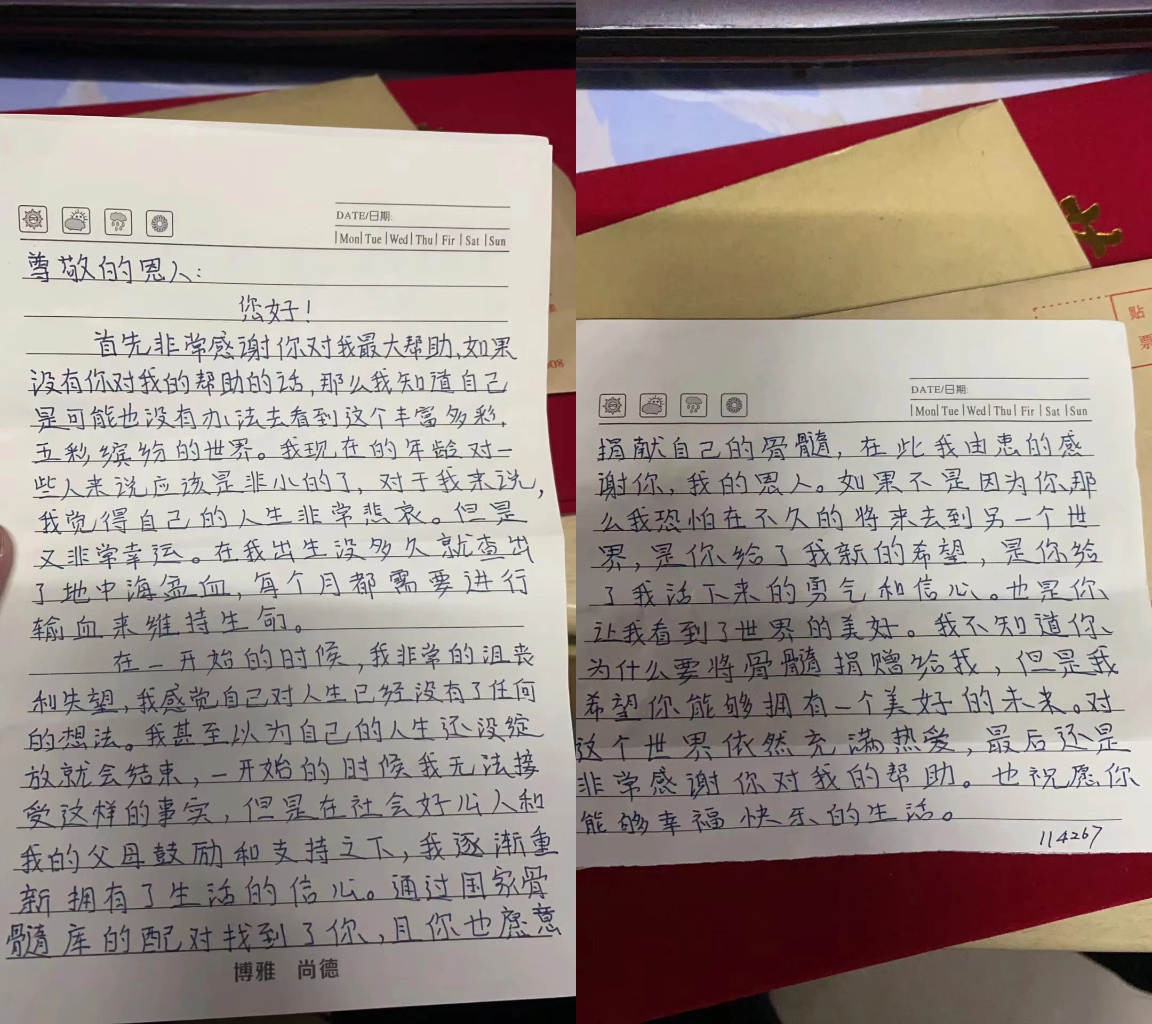 DATE/日期:
Mon Tue Wed Thu Fir Sat Sun
尊敬的恩人:
您好!
首先非常感谢你对我最大帮助,如果
没有你对我的帮助的话,那么我知道自己
是可能也没有办法去看到这个丰富多彩,
五彩缤纷的世界。我现在的年龄对一
些人来说应该是非小的了,对于我来说,
我觉得自己的人生非常悲哀。但是
又非常幸运。在我出生没多久就查出
了地中海孟血,每个月都需要进行
输血来维持生命。
在一开始的时候,我非常的沮丧
和失望,我感觉自己对人生已经没有了任何
的想法。我甚至以为自己的人生还没绽
放就会结束,一开始的时候我无法接
受这样的事实,但是在社会好心人和
我的父母鼓励和支持之下,我逐渐重
新拥有了生活的信心。通过国家骨
髓库的配对找到了你,且你也愿意
博雅 尚德
DATE/日期:
Mon Tue Wed Thu Fir Sat Sun
捐献自己的骨髓,在此我由患的感
谢你,我的恩人。如果不是因为你,那
么我恐怕在不久的将来去到另一个世
界,是你给了我新的希望,是你给
了我活下来的勇气和信心。也是你
让我看到了世界的美好。我不知道你
为什么要将骨髓捐赠给我,但是我
希望你能够拥有一个美好的未来。对
这个世界依然充满热爱,最后还是
非常感谢你对我的帮助。也祝愿你
能够幸福快乐的生活。
114267
贴
票